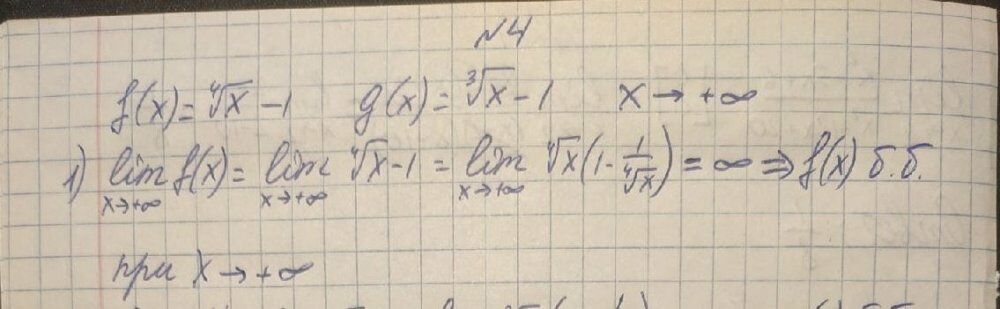 №4
f(x) = ⁴√x − 1 g(x) = ³√x − 1 x → +∞
1) lim f(x) = lim ⁴√x − 1 = lim ⁴√x(1 − 1/⁴√x) = ∞ ⇒ f(x) б.б.
x→+∞ x→+∞ x→+∞
при x → +∞